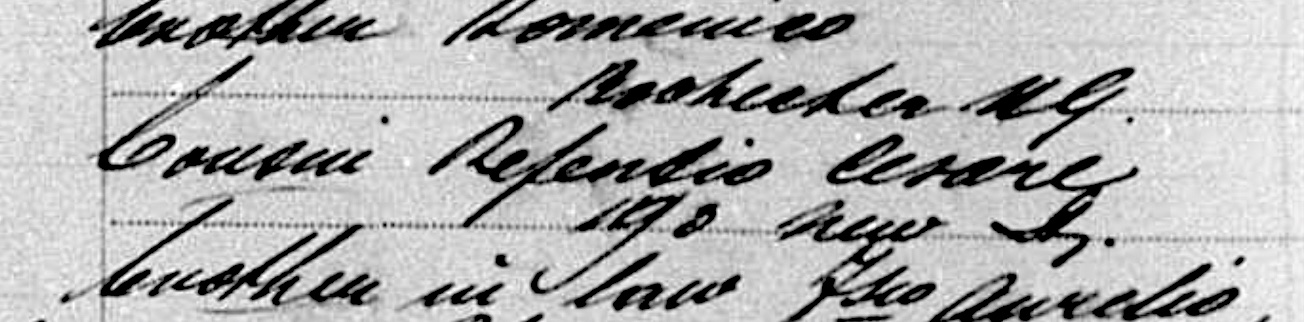 brother Domenico
Rochester N Y.
Cousin Refendio Cesare
198 New St.
brother in law Aurelio